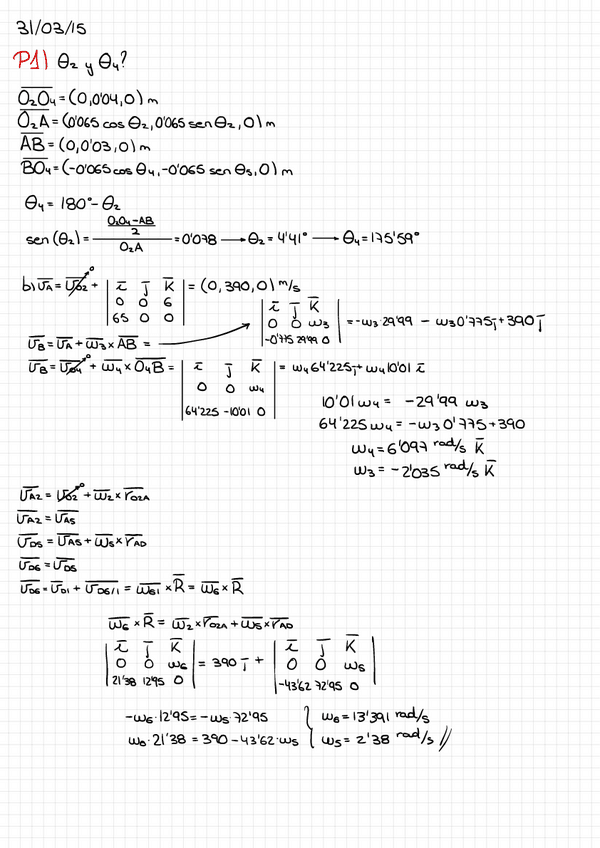 31/03/15
P1) θ₂ y θ₄?
O₂O₄ = (0,0'04,0) m
O₂A = (0'065 cos θ₂, 0'065 sen θ₂, 0) m
AB = (0,0'03,0) m
BO₄ = (-0'065 cos θ₄, -0'065 sen θ₅, 0) m
θ₄ = 180° - θ₂
sen (θ₂) = ((O₂O₄ - AB)/2)/O₂A = 0'078 → θ₂ = 4'41° → θ₄ = 175'59°
b) v̄A = v̄O2⁰ + | ī j̄ k̄ | = (0, 390, 0) m/s
0 0 6
65 0 0
| ī j̄ k̄ |
0 0 ω₃ = -ω₃·29'99 - ω₃ 0'775j̄ + 390 j̄
-0'775 29'99 0
v̄B = v̄A + ω̄₃ × AB =
v̄B = v̄O4⁰ + ω̄₄ × O₄B = | ī j̄ k̄ | = ω₄ 64'225j̄ + ω₄ 10'01 ī
0 0 ω₄
64'225 -10'01 0
10'01 ω₄ = -29'99 ω₃
64'225 ω₄ = -ω₃ 0'775 + 390
ω₄ = 6'097 rad/s k̄
ω₃ = -2'035 rad/s k̄
v̄A2 = v̄O2⁰ + ω̄₂ × r̄O2A
v̄A2 = v̄A5
v̄D5 = v̄A5 + ω̄₅ × r̄AD
v̄D6 = v̄D5
v̄D6 = v̄D1 + v̄D6/1 = ω̄61 × R̄ = ω̄₆ × R̄
ω̄₆ × R̄ = ω̄₂ × r̄O2A + ω̄₅ × r̄AD
| ī j̄ k̄ | | ī j̄ k̄ |
0 0 ω₆ = 390 j̄ + 0 0 ω₅
21'38 12'95 0 -43'62 72'95 0
-ω₆·12'95 = -ω₅ 72'95 } ω₆ = 13'391 rad/s
ω₆·21'38 = 390 - 43'62·ω₅ ω₅ = 2'38 rad/s //